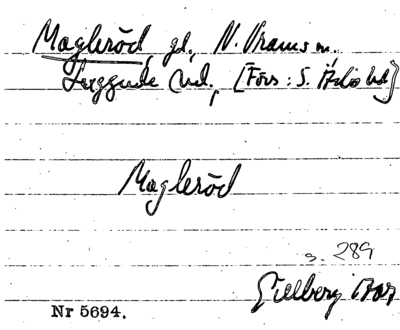 Magleröd, gd, N. Vrams sn.
Luggude hd., [Förs: S. Åsbo hd]
Magleröd
s. 289
Gillberg
Nr 5694.